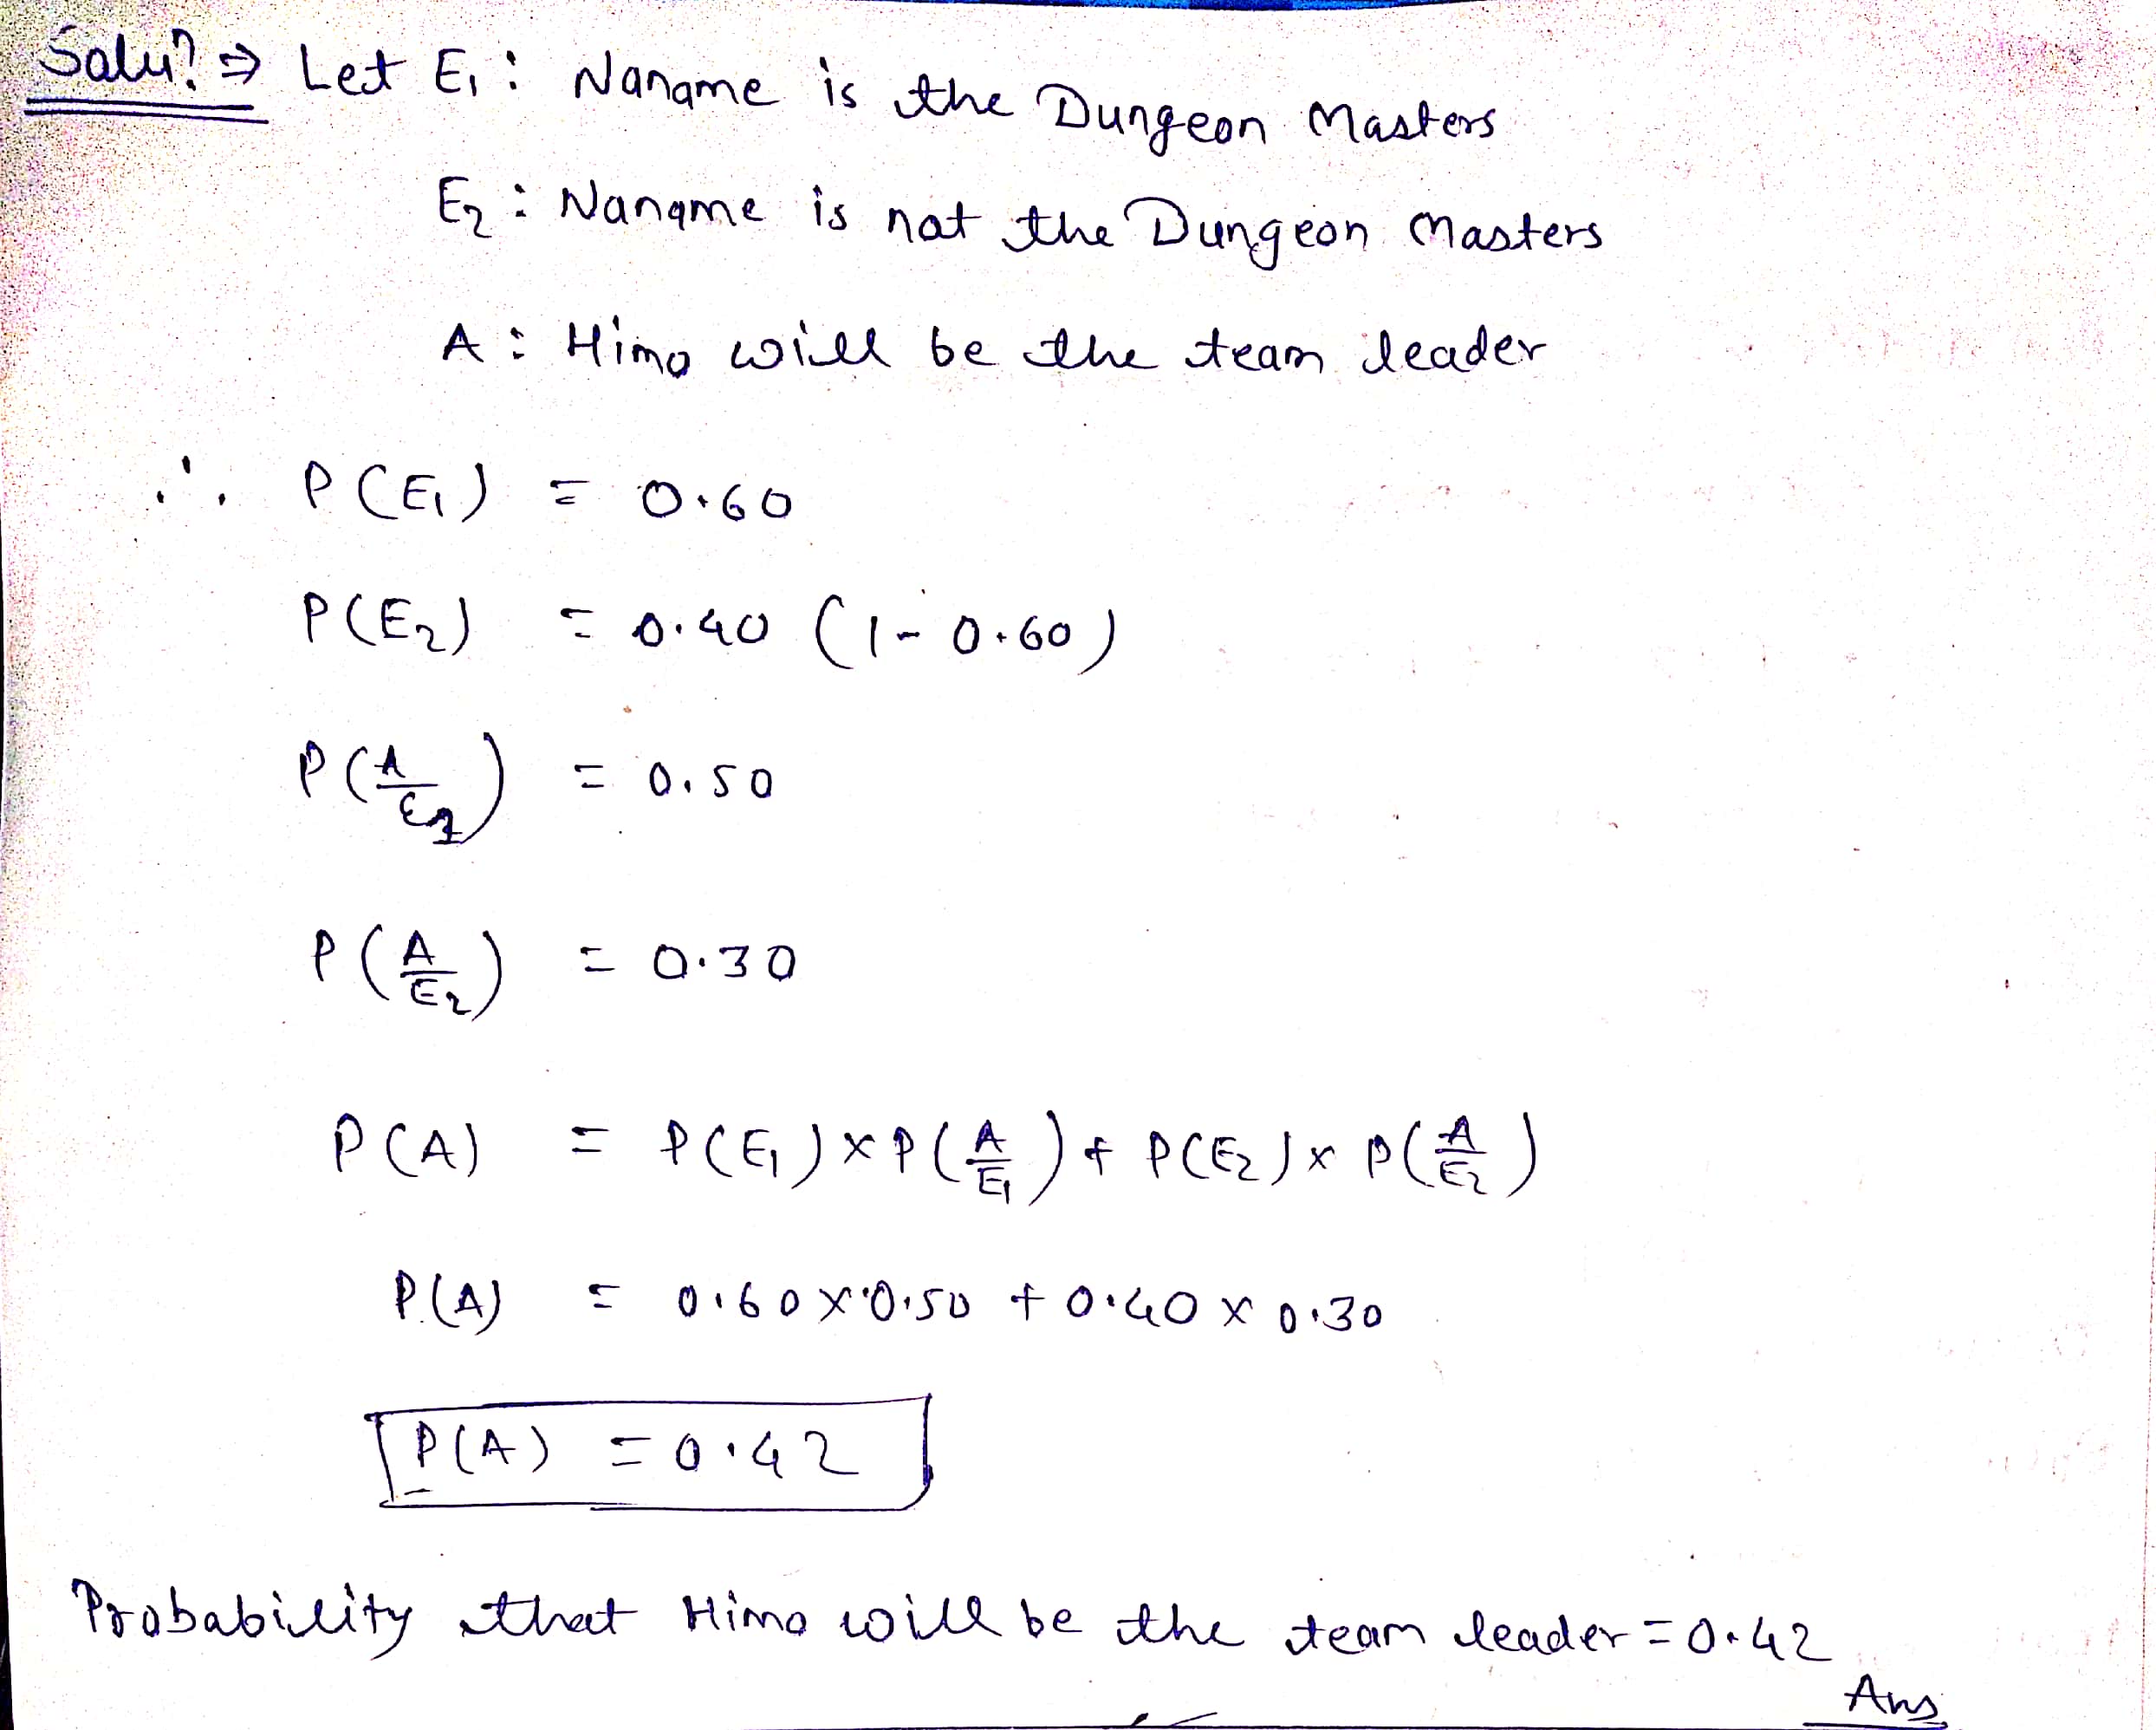 Solu? ⇒ Let E₁ : Naname is the Dungeon Masters
E₂ : Naname is not the Dungeon Masters
A : Himo will be the team leader
∴ P(E₁) = 0.60
P(E₂) = 0.40 (1 - 0.60)
P(A/E₁) = 0.50
P(A/E₂) = 0.30
P(A) = P(E₁) × P(A/E₁) + P(E₂) × P(A/E₂)
P(A) = 0.60 × 0.50 + 0.40 × 0.30
P(A) = 0.42
Probability that Himo will be the team leader = 0.42
Ans